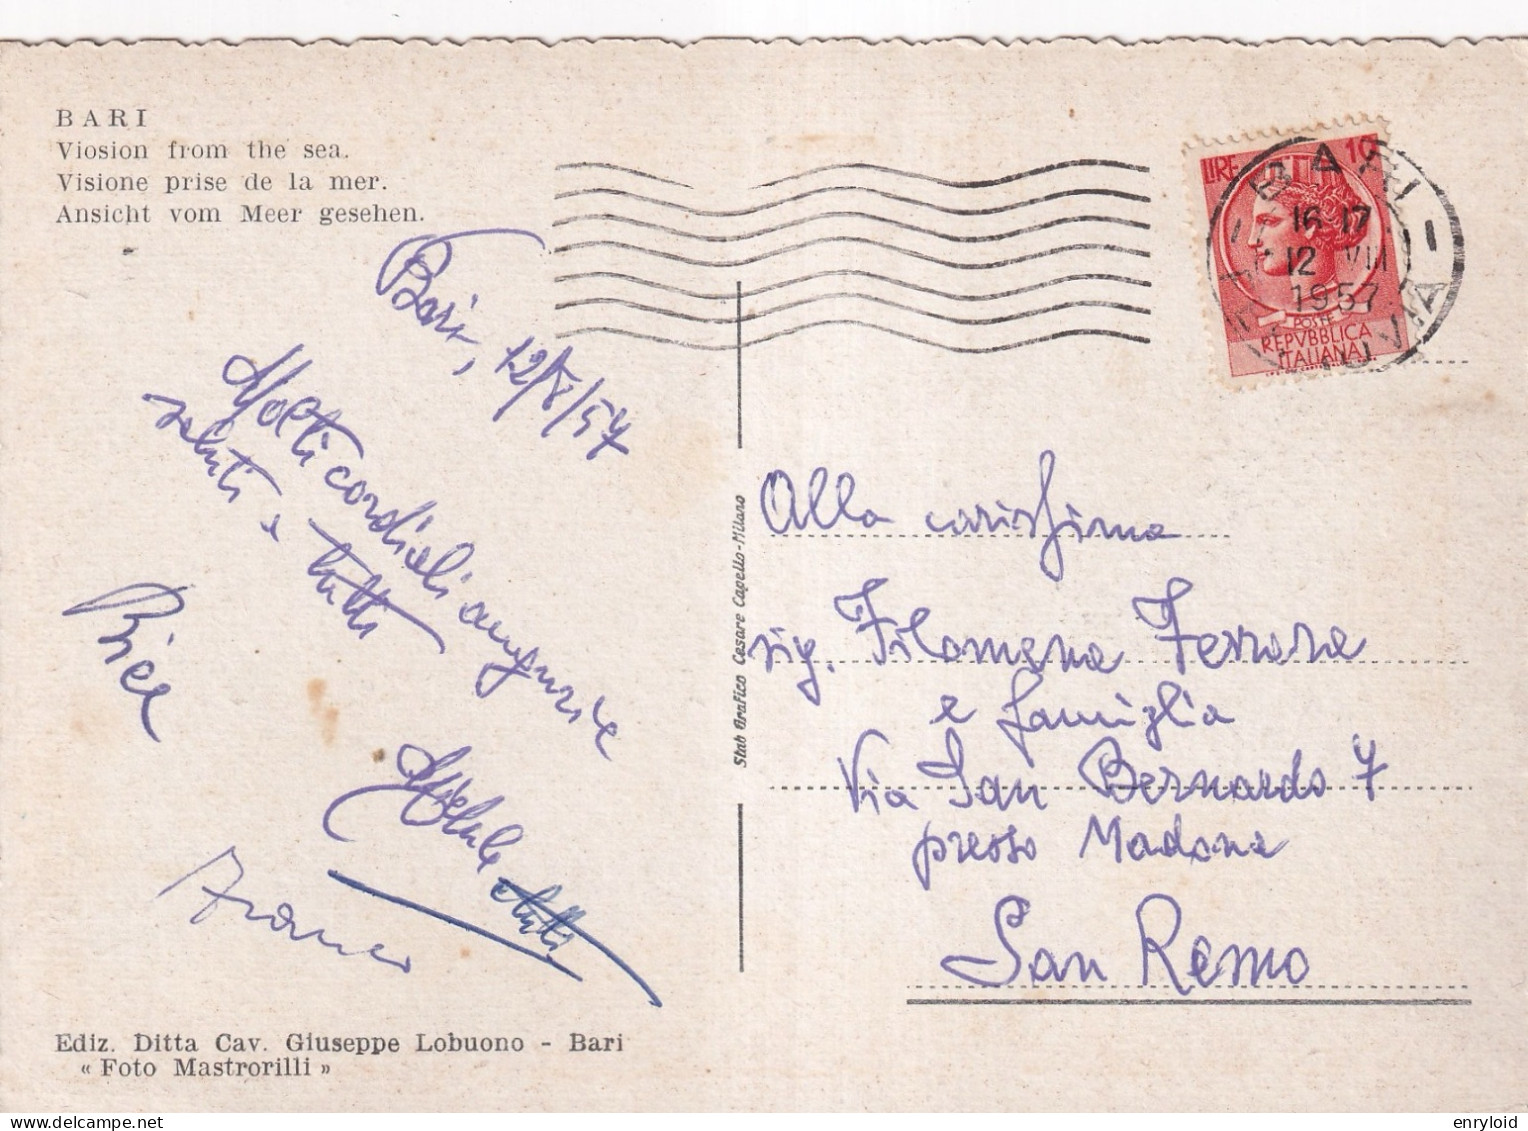 BARI
Viosion from the sea.
Visione prise de la mer.
Ansicht vom Meer gesehen.
LIRE 10
POSTE
REPVBBLICA
ITALIANA
BARI
16-17
12 VIII
1957
Bari, 12/8/57
Molti cordiali auguri e
saluti a tutti
Bice
Franco
Stab Grafico Cesare Capello-Milano
Alla carissima
sig. Filomena Ferrara
e famiglia
Via San Bernardo 7
presso Madona
San Remo
Ediz. Ditta Cav. Giuseppe Lobuono - Bari
« Foto Mastrorilli »
enryloid